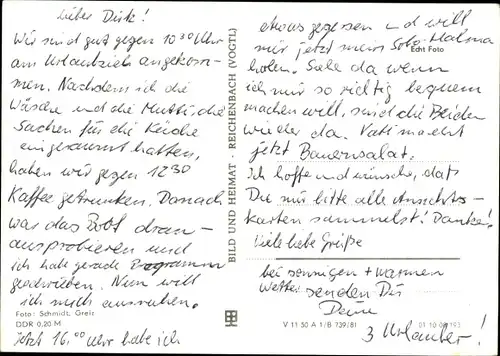 Lieber Dirk!
Wir sind gut gegen 10³⁰ Uhr
am Urlaubsziel angekom-
men. Nachdem ich die
Wäsche und die Mutti, die
Sachen für die Küche
eingeräumt hatten,
haben wir gegen 12³⁰
Kaffee getrunken. Danach
war das Boot dran-
ausprobieren und
ich habe gerade Programm
geschrieben. Nun will
ich mich ausruhen.
Foto: Schmidt, Greiz
DDR 0,20 M
Jetzt 16.⁰⁰ Uhr habe ich
BILD UND HEIMAT · REICHENBACH (VOGTL)
etwas gegessen und will
mir jetzt mein Solo-Halma
Echt Foto
holen. Siehe da wenn
ich mir so richtig bequem
machen will, sind die Beiden
wieder da. Vati macht
jetzt Bauernsalat.
Ich hoffe und wünsche, daß
Du mir bitte alle Ansichts-
karten sammelst! Danke.
Viele liebe Grüße
bei sonnigen + warmen
Wetter senden Dir
Deine
V 11 30 A 1/B 739/81
3 Urlauber!